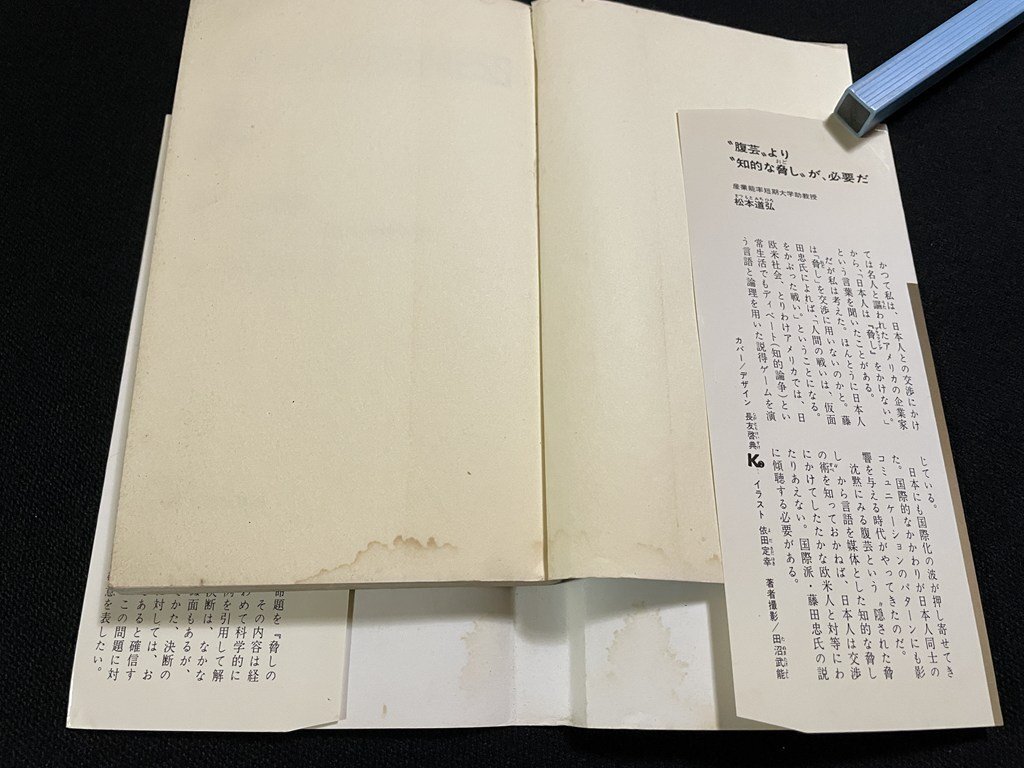 〝腹芸〟より
〝知的な脅し〟が、必要だ
産業能率短期大学助教授
松本道弘
かつて私は、日本人との交渉にかけ
ては名人と謳われたアメリカの企業家
から、「日本人は『脅し』をかけない。」
という言葉を聞いたことがある。
だが私は考えた。ほんとうに日本人
は「脅し」を交渉に用いないのかと。藤
田忠氏によれば、「人間の戦いは、仮面
をかぶった戦い」。ということになる。
欧米社会、とりわけアメリカでは、日
常生活でもディベート(知的論争)とい
う言語と論理を用いた説得ゲームを演
じている。
日本にも国際化の波が押し寄せてき
た。国際的なかかわりが日本人同士の
コミュニケーションのパターンにも影
響を与える時代がやってきたのだ。
沈黙にみる腹芸という〝隠された脅
し〟から言語を媒体とした知的な脅し
の術を知っておかねば、日本人は交渉
にかけてしたたかな欧米人と対等にわ
たりあえない。国際派・藤田忠氏の説
に傾聴する必要がある。
カバー/デザイン 長友啓典 K₂ イラスト 依田定幸 著者撮影/田沼武能
命題を『脅しの
その内容は経
わめて科学的に
例を引用して解
決断は、なかな
面もあるが、
でかた、決断の
対しては、お
であると確信す
この問題に対
意を表したい。